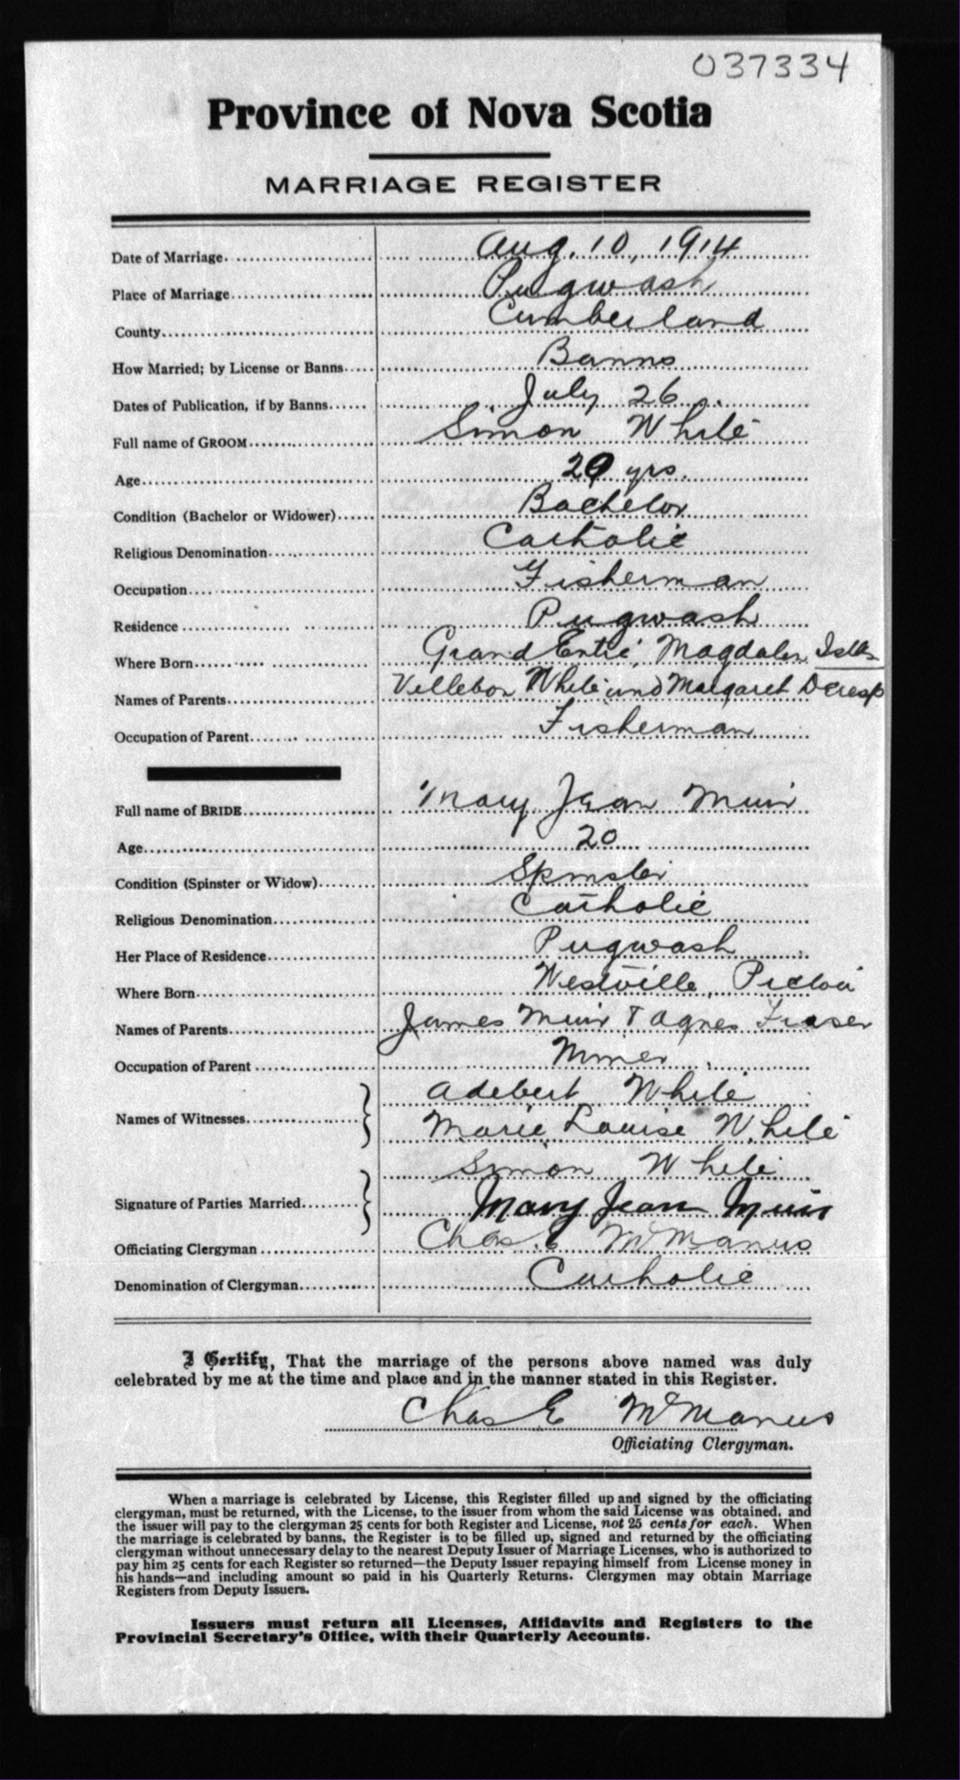 037334
Province of Nova Scotia
MARRIAGE REGISTER
Date of Marriage Aug. 10, 1914
Place of Marriage Pugwash
County Cumberland
How Married; by License or Banns Banns
Dates of Publication, if by Banns July 26
Full name of GROOM Simon White
Age yrs.
Condition (Bachelor or Widower) Bachelor
Religious Denomination Catholic
Occupation Fisherman
Residence Pugwash
Where Born Grand Entré, Magdalen Islds
Names of Parents White and Margaret
Occupation of Parent Fisherman
Full name of BRIDE Mary Jean Muir
Age 20
Condition (Spinster or Widow) Spinster
Religious Denomination Catholic
Her Place of Residence Pugwash
Where Born Westville, Pictou
Names of Parents James Muir & Agnes Fraser
Occupation of Parent Miner
Names of Witnesses Adebert White
Marie Louise White
Simon White
Signature of Parties Married Mary Jean Muir
Officiating Clergyman Chas. E McManus
Denomination of Clergyman Catholic
I Certify, That the marriage of the persons above named was duly
celebrated by me at the time and place and in the manner stated in this Register.
Chas E McManus
Officiating Clergyman.
When a marriage is celebrated by License, this Register filled up and signed by the officiating
clergyman, must be returned, with the License, to the issuer from whom the said License was obtained, and
the issuer will pay to the clergyman 25 cents for both Register and License, not 25 cents for each. When
the marriage is celebrated by banns, the Register is to be filled up, signed and returned by the officiating
clergyman without unnecessary delay to the nearest Deputy Issuer of Marriage Licenses, who is authorized to
pay him 25 cents for each Register so returned—the Deputy Issuer repaying himself from License money in
his hands—and including amount so paid in his Quarterly Returns. Clergymen may obtain Marriage
Registers from Deputy Issuers.
Issuers must return all Licenses, Affidavits and Registers to the
Provincial Secretary's Office, with their Quarterly Accounts.